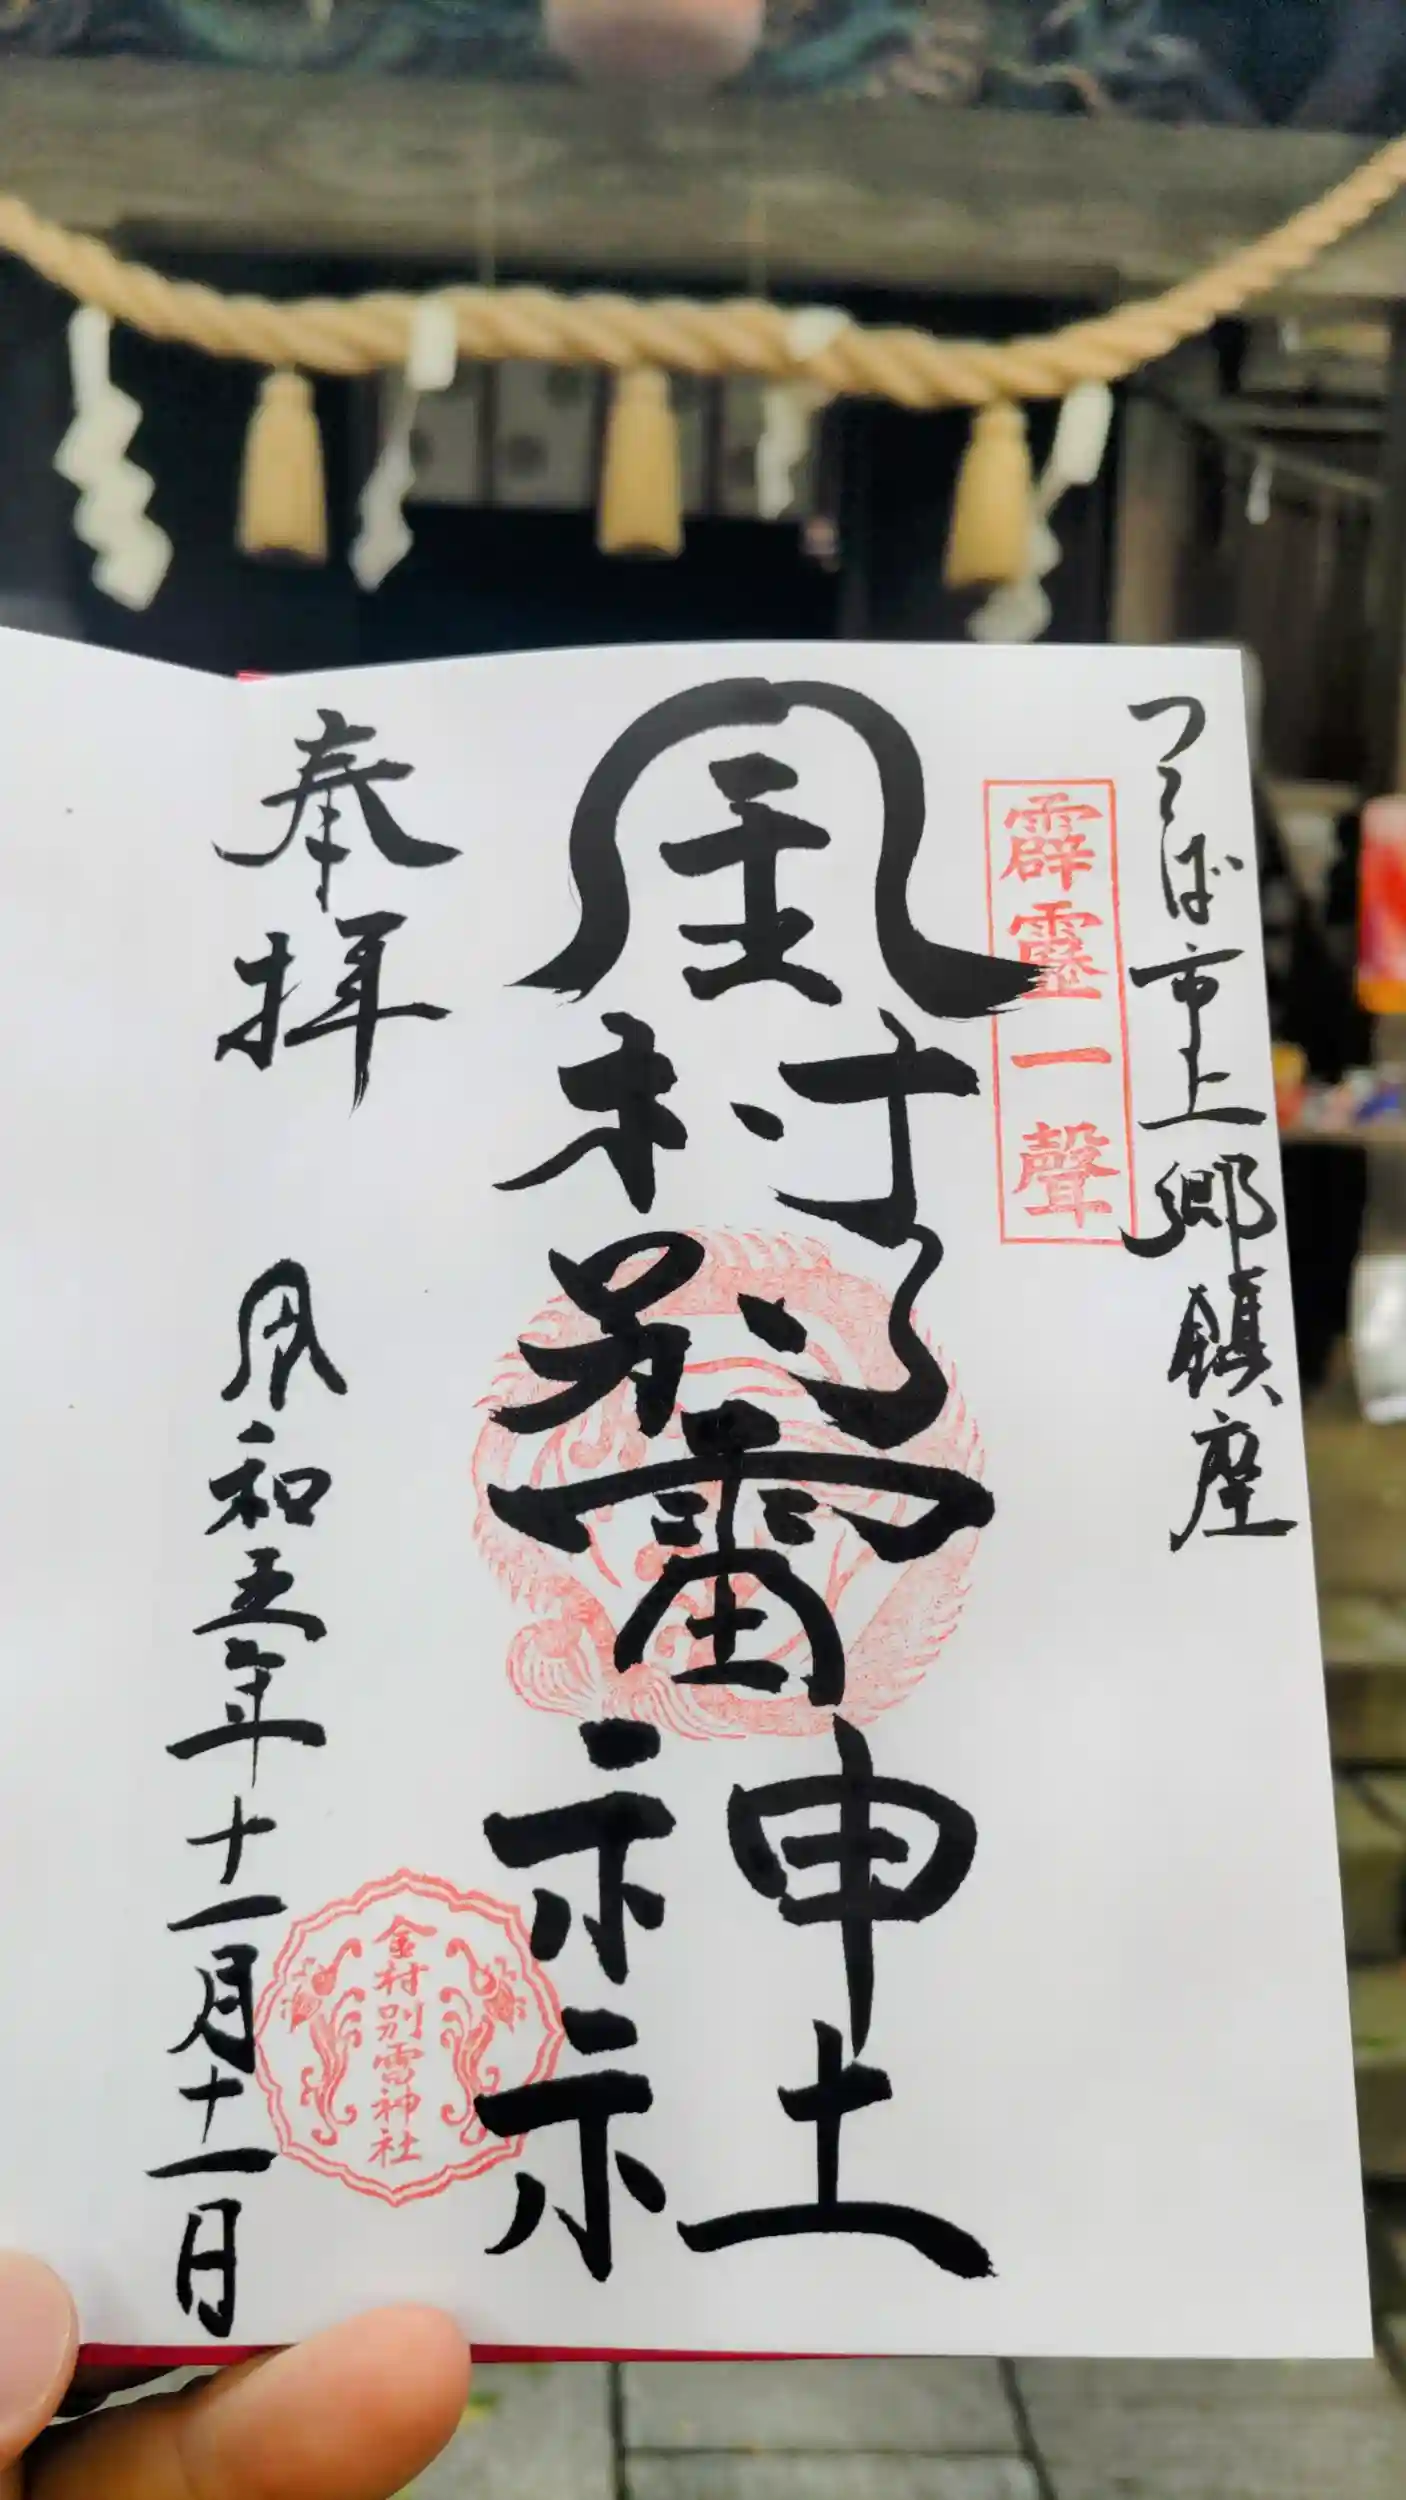 つくば市上郷鎮座
霹靂一聲
金村別雷神社
奉拝
令和五年十一月十一日
金村別雷神社